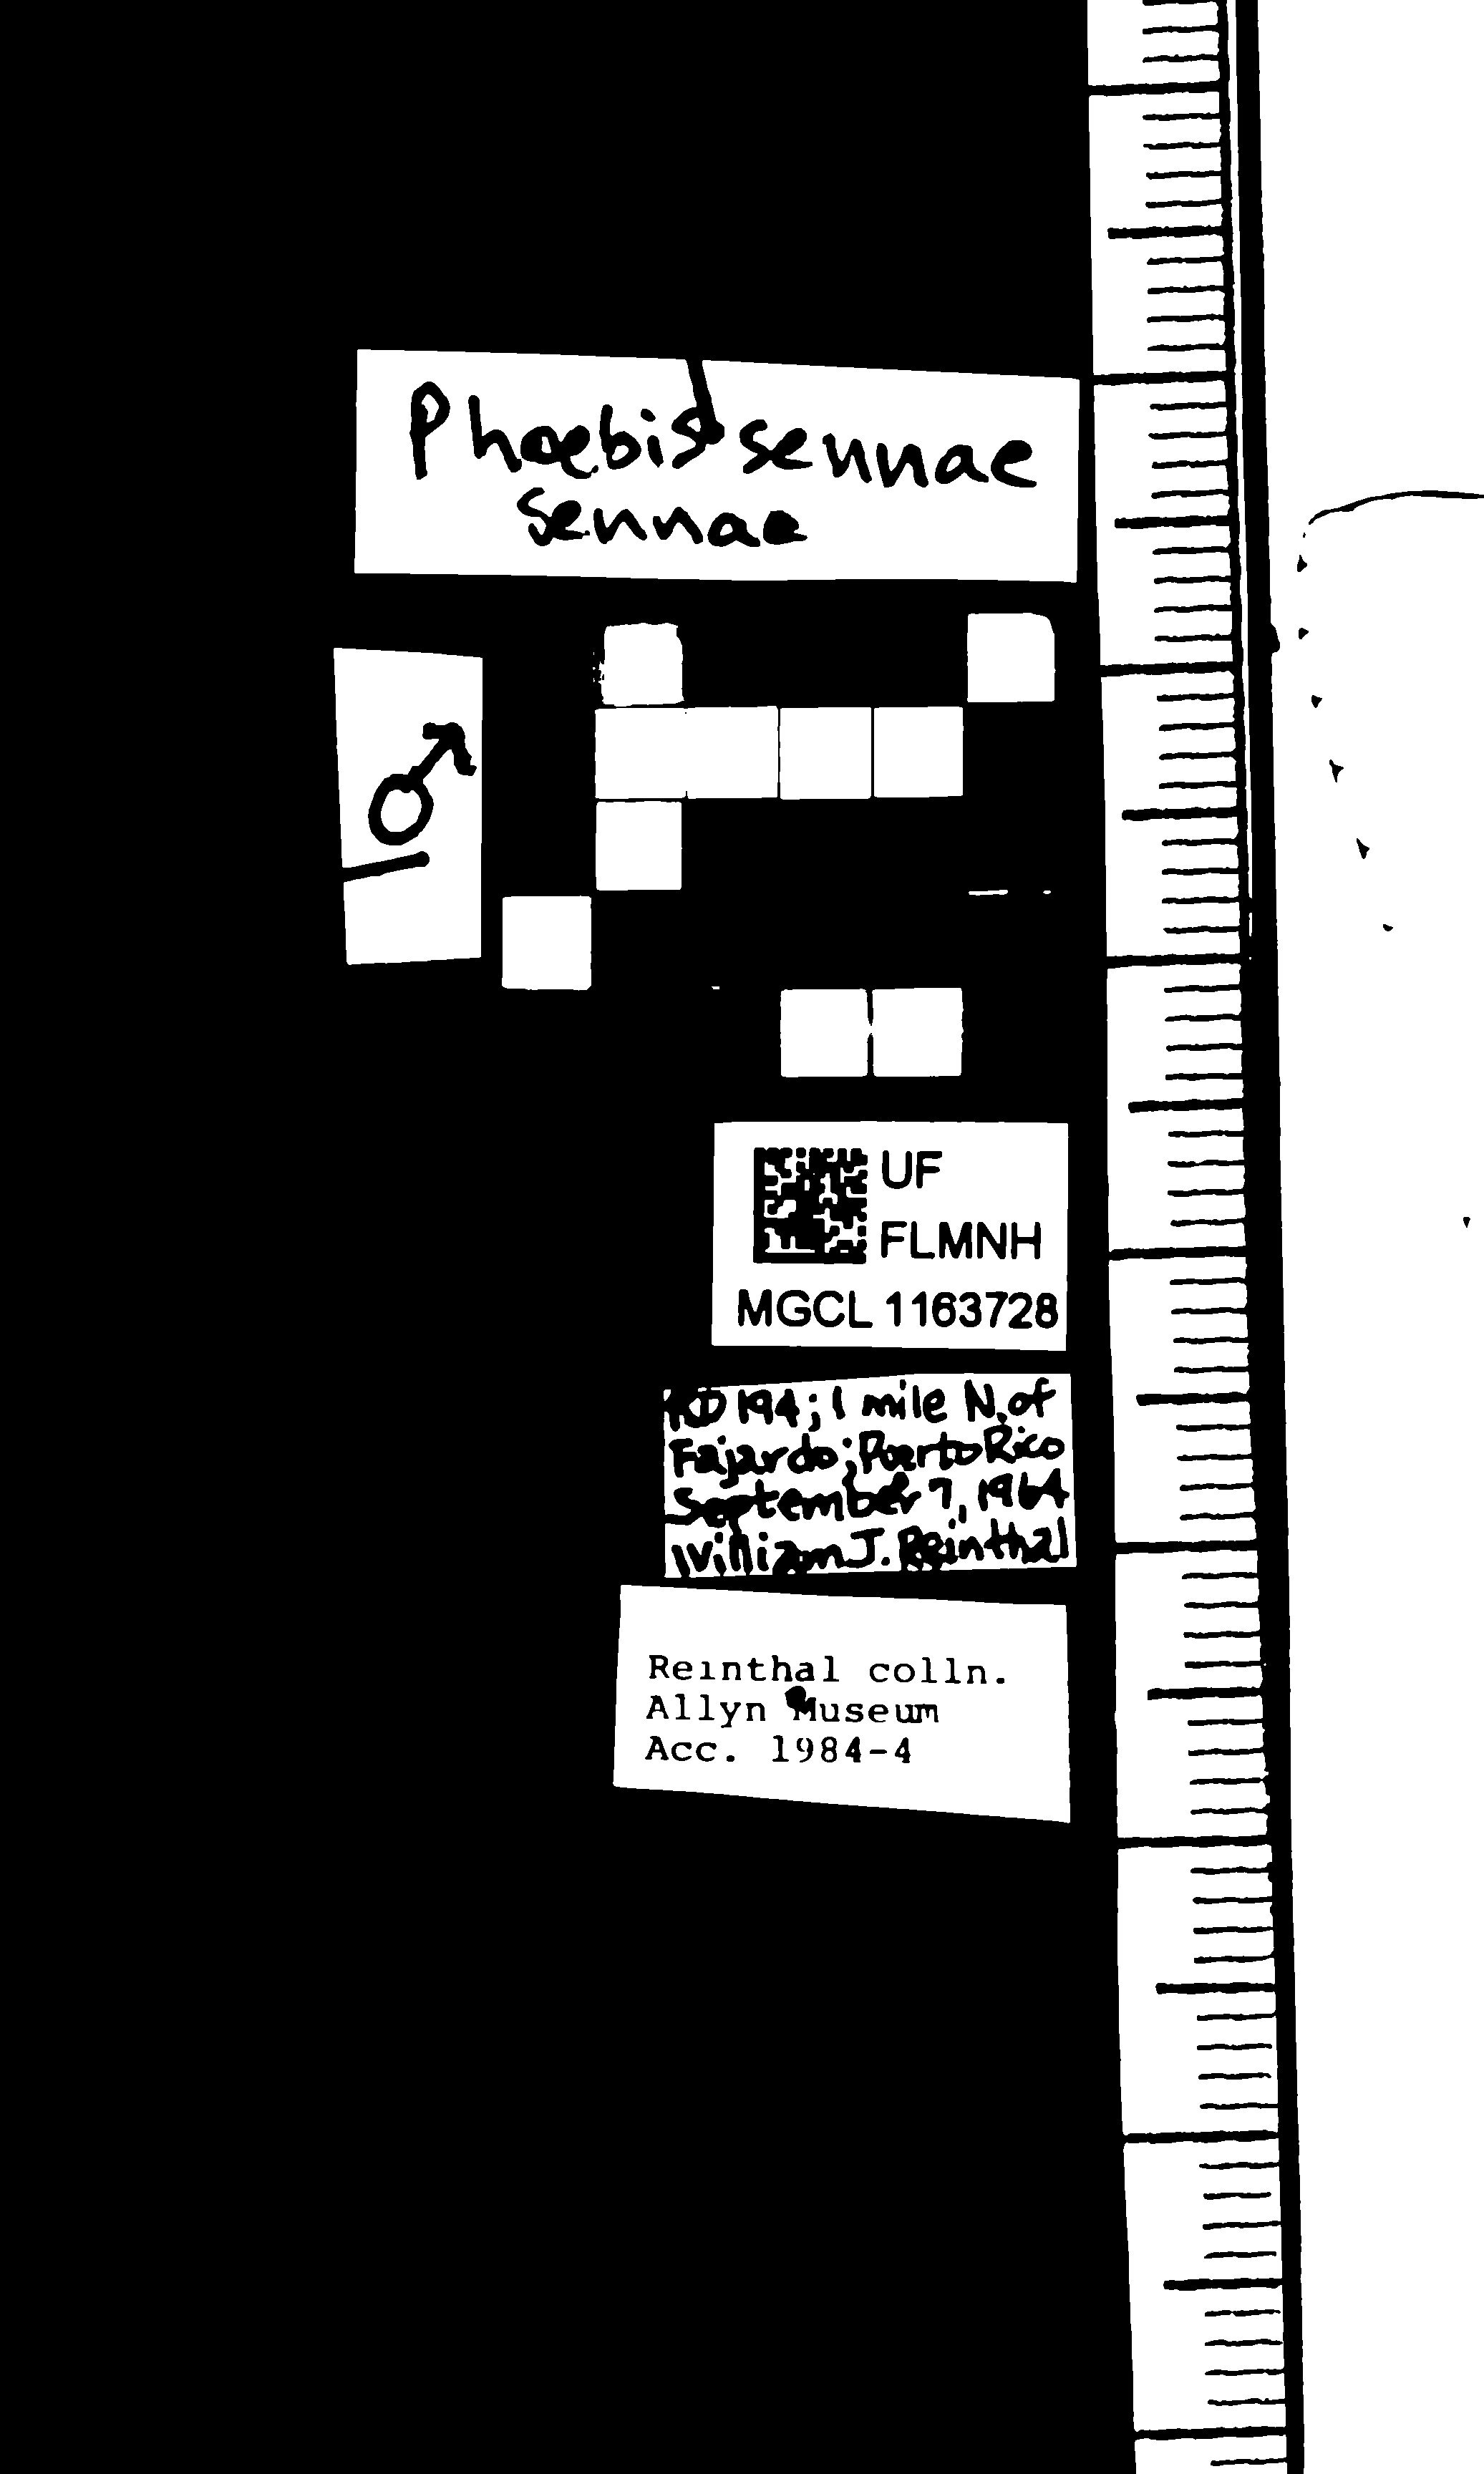 Phoebis sennae
sennae
♂
UF
FLMNH
MGCL 1163728
RD 194; 1 mile N. of
Fajardo; Puerto Rico
September 7, 1964
William J. Reinthal
Reinthal colln.
Allyn Museum
Acc. 1984-4